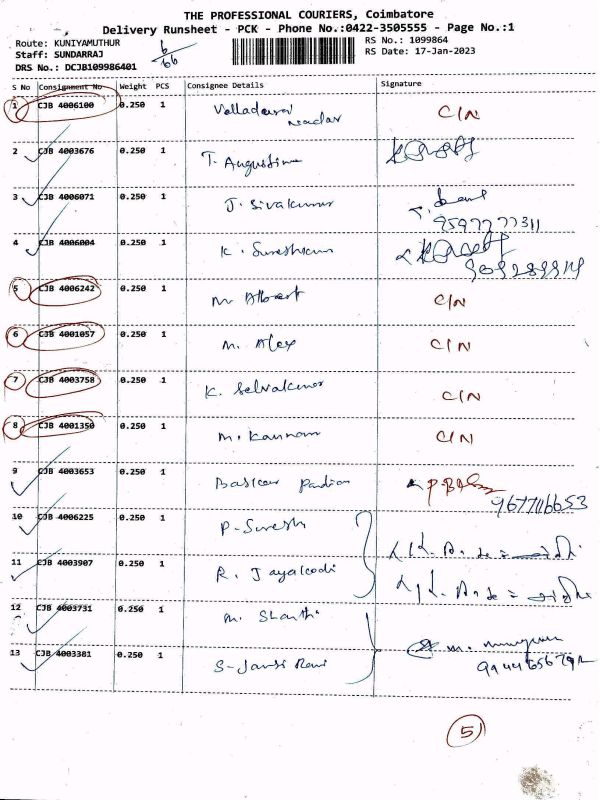 THE PROFESSIONAL COURIERS, Coimbatore
Delivery Runsheet - PCK - Phone No.:0422-3505555 - Page No.:1
Route: KUNIYAMUTHUR
RS No.: 1099864
Staff: SUNDARRAJ
RS Date: 17-Jan-2023
DRS No.: DCJB109986401
6/66
S No Consignment No Weight PCS Consignee Details Signature
1 CJB 4006100 0.250 1 Nadar C/N
2 CJB 4003676 0.250 1 T. Augustine
3 CJB 4006071 0.250 1 J. Sivakumar
9597777311
4 CJB 4006004 0.250 1 K. Sureshkum
5 CJB 4006242 0.250 1 M. Albert C/N
6 CJB 4001057 0.250 1 M. Alex C/N
7 CJB 4003758 0.250 1 K. Selvakumar C/N
8 CJB 4001350 0.250 1 M. Kannan C/N
9 CJB 4003653 0.250 1 Baskar Pandian
10 CJB 4006225 0.250 1 P. Suresh
11 CJB 4003907 0.250 1 R. Jayalcodi
12 CJB 4003731 0.250 1 M. Shanthi
13 CJB 4003381 0.250 1 S-Jansi Rani
5